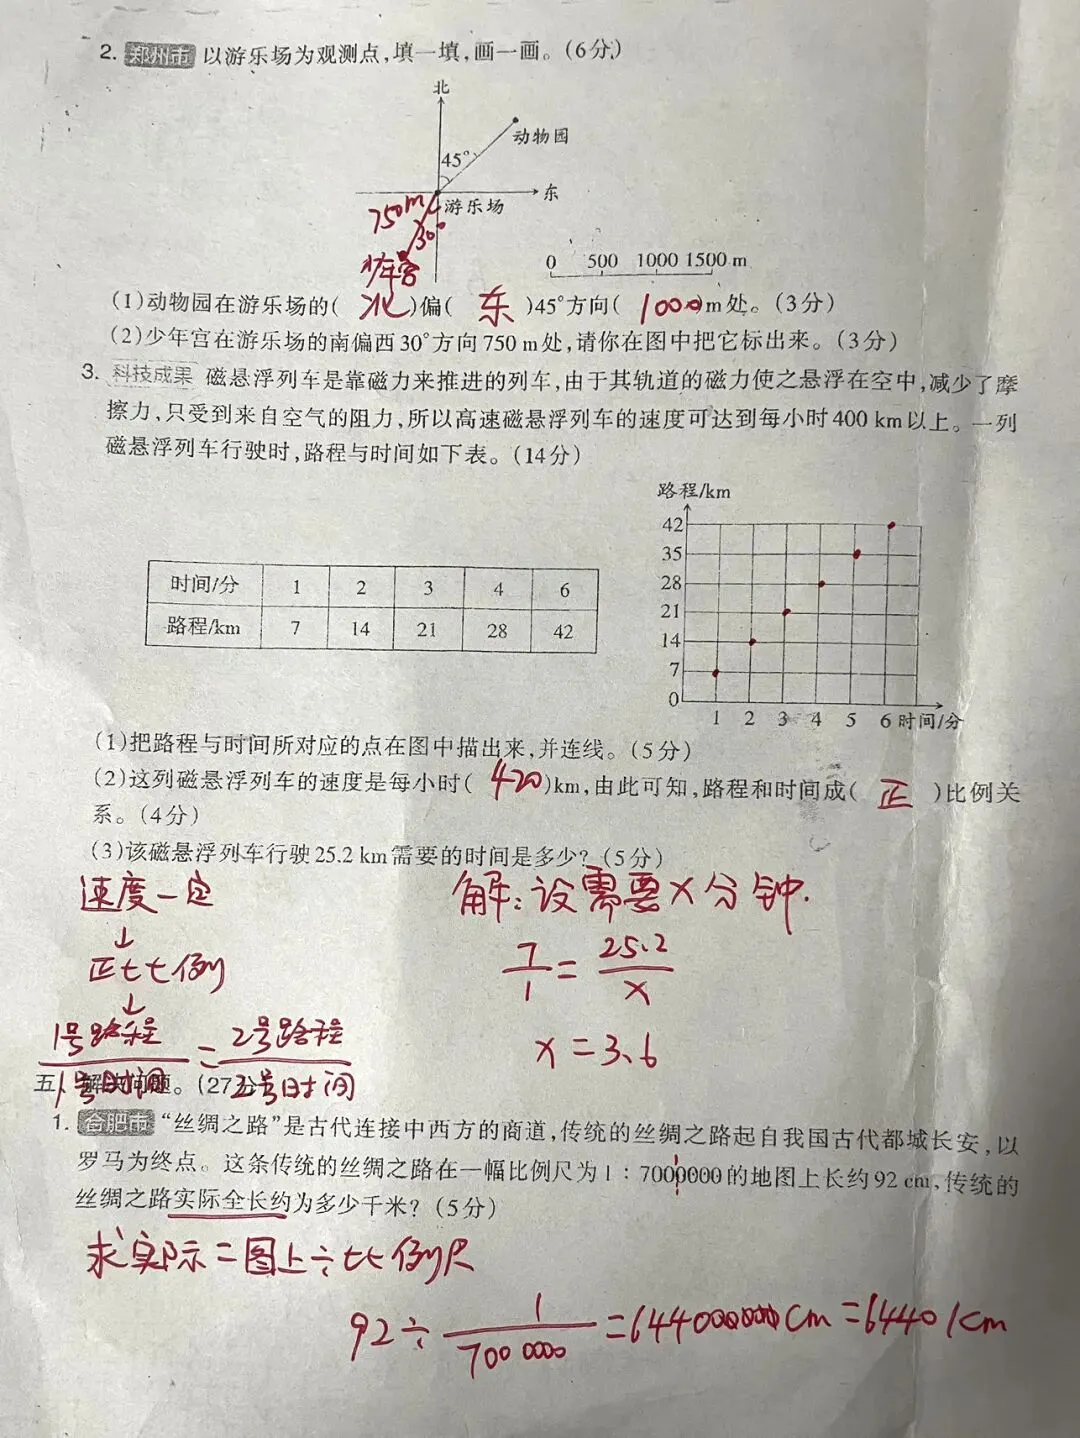 2. 郑州市 以游乐场为观测点,填一填,画一画。(6分)
北
动物园
45°
东
游乐场
750m
30°
少年宫
0 500 1000 1500 m
(1)动物园在游乐场的( 北 )偏( 东 )45°方向( 1000 )m处。(3分)
(2)少年宫在游乐场的南偏西30°方向750 m处,请你在图中把它标出来。(3分)
3. 科技成果 磁悬浮列车是靠磁力来推进的列车,由于其轨道的磁力使之悬浮在空中,减少了摩
擦力,只受到来自空气的阻力,所以高速磁悬浮列车的速度可达到每小时400 km以上。一列
磁悬浮列车行驶时,路程与时间如下表。(14分)
时间/分 1 2 3 4 6
路程/km 7 14 21 28 42
路程/km
42
35
28
21
14
7
0
1 2 3 4 5 6 时间/分
(1)把路程与时间所对应的点在图中描出来,并连线。(5分)
(2)这列磁悬浮列车的速度是每小时( 420 )km,由此可知,路程和时间成( 正 )比例关
系。(4分)
(3)该磁悬浮列车行驶25.2 km需要的时间是多少?(5分)
速度一定
↓
正比例
↓
1号路程/1号时间 = 2号路程/2号时间
解:设需要x分钟.
7/1 = 25.2/x
x = 3.6
五、解决问题。(27分)
1. 合肥市 “丝绸之路”是古代连接中西方的商道,传统的丝绸之路起自我国古代都城长安,以
罗马为终点。这条传统的丝绸之路在一幅比例尺为1:7000000的地图上长约92 cm,传统的
丝绸之路实际全长约为多少千米?(5分)
求实际=图上÷比例尺
92÷1/7000000=644000000cm=6440km